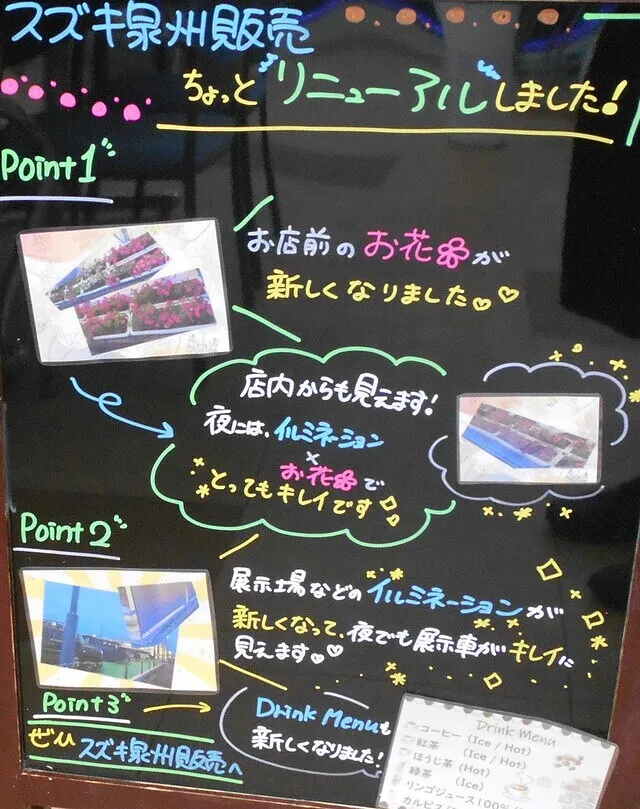 スズキ泉州販売
ちょっと"リニューアル"しました!
Point1
お店前のお花が
新しくなりました
店内からも見えます!
夜には、イルミネーション
×
お花で
とってもキレイです
Point2
展示場などのイルミネーションが
新しくなって、夜でも展示車がキレイに
見えます
Point3
Drink Menuも
新しくなりました!
ぜひ
スズキ泉州販売へ
Drink Menu
コーヒー (Ice / Hot)
紅茶 (Ice / Hot)
ほうじ茶 (Hot)
緑茶 (Ice)
リンゴジュース100%
カルピス